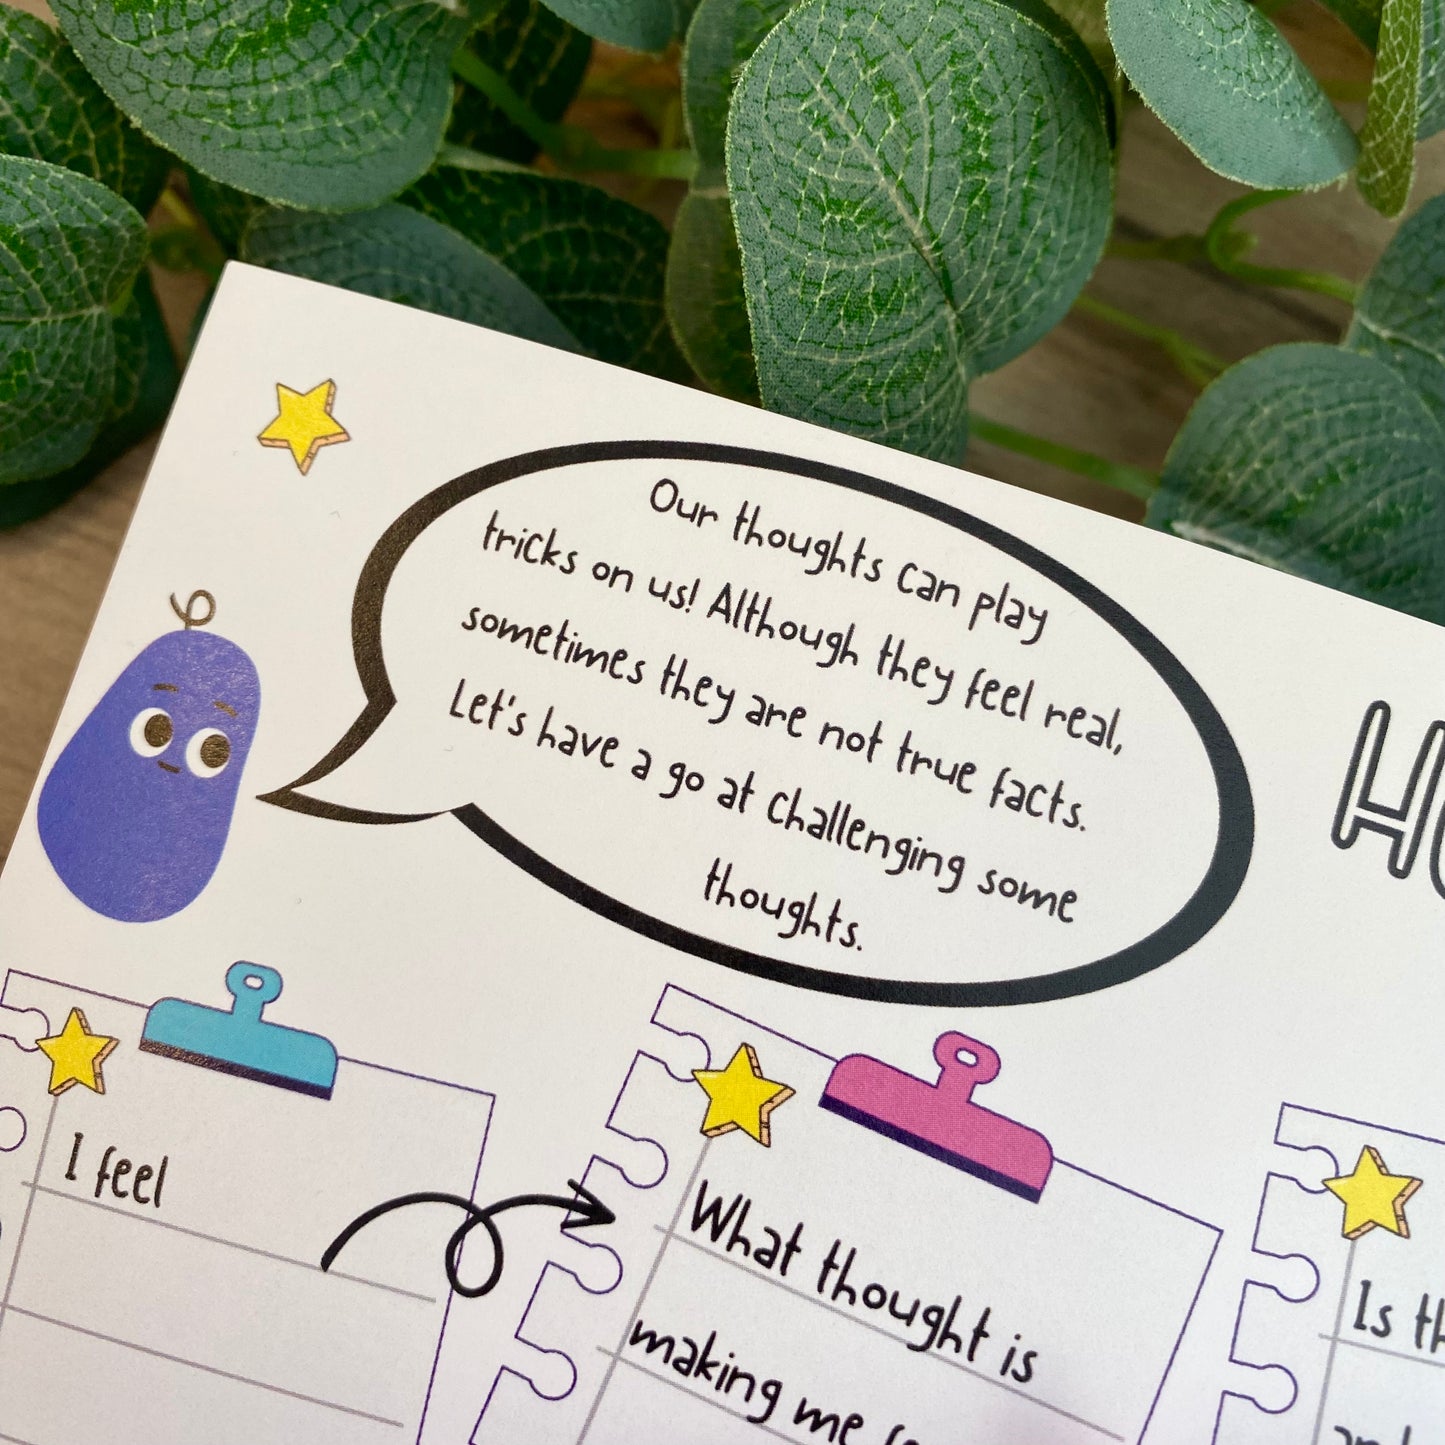 Our thoughts can play
tricks on us! Although they feel real,
sometimes they are not true facts.
Let's have a go at challenging some
thoughts.
I feel
What thought is
making me
Is